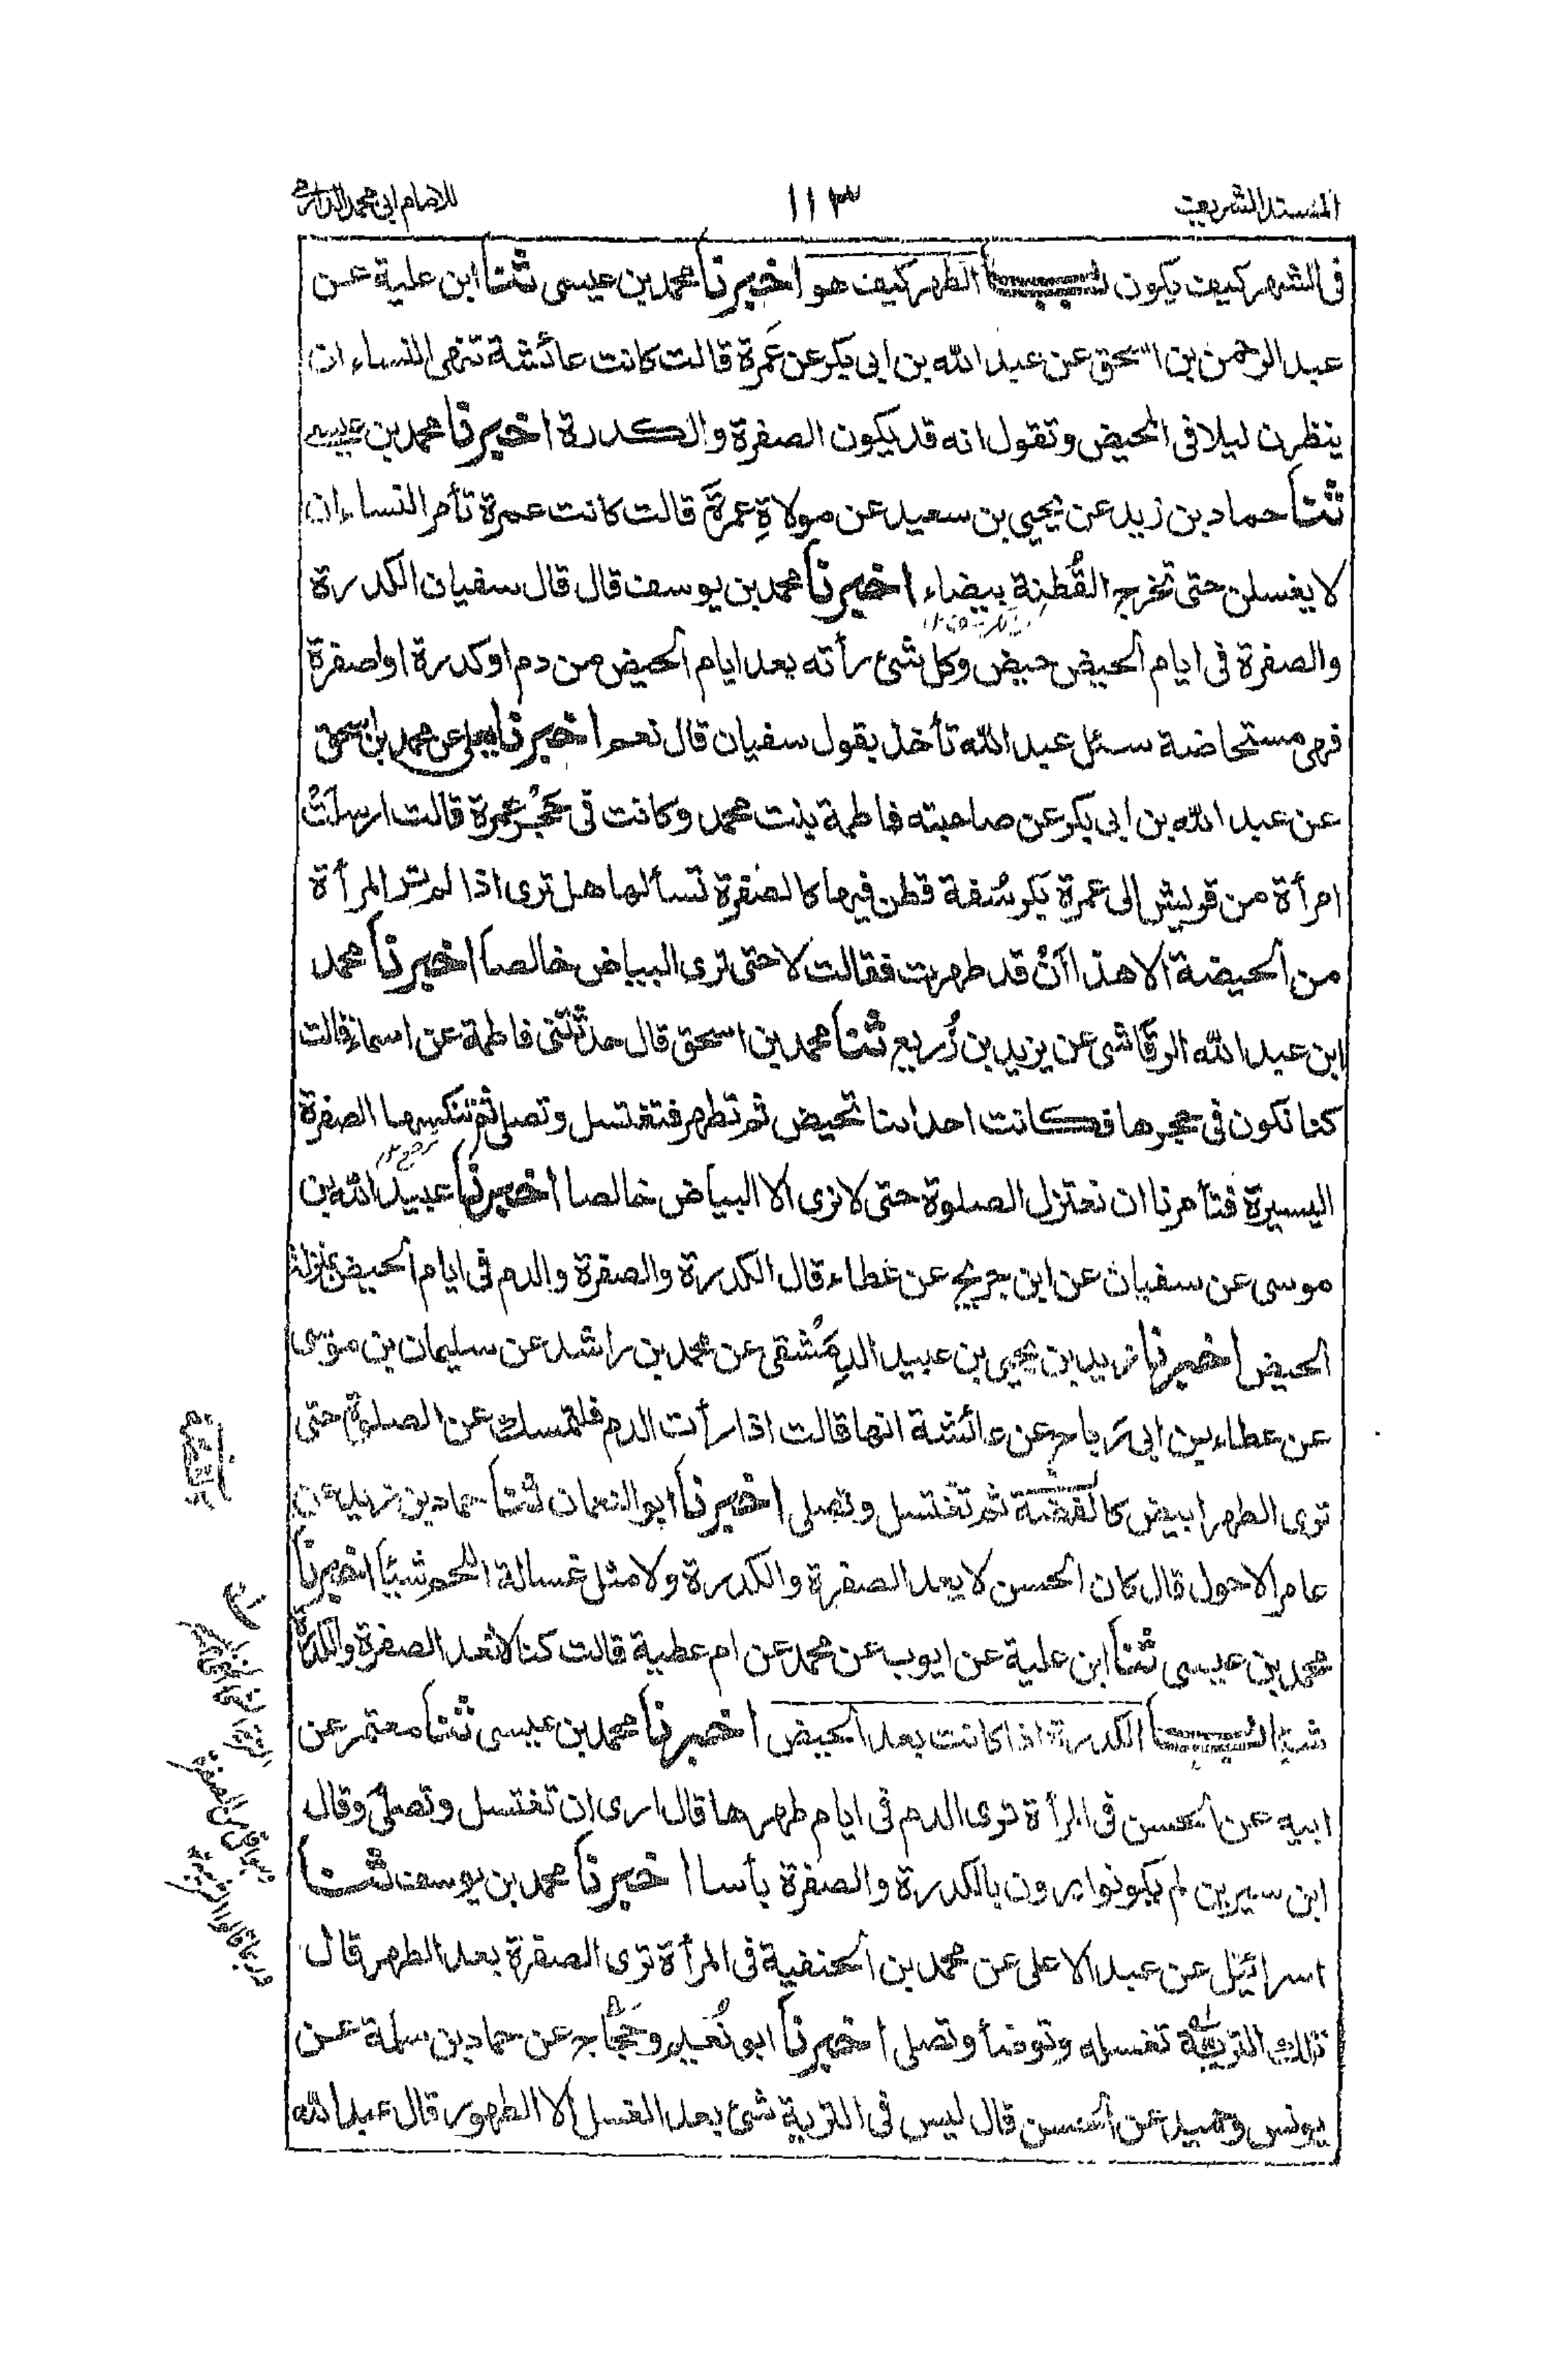 المسند الشريف ١١٣ للامام ابى محمد الدارمى
فى الشهر كيف يكون باب الطهر كيف هو اخبرنا محمد بن عيسى ثنا ابن علية عن
عبد الرحمن بن اسحق عن عبد الله بن ابى بكر عن عَمرة قالت كانت عائشة تنهى النساء ان
ينظرن ليلا فى الحيض وتقول انه قد يكون الصفرة والكدرة اخبرنا محمد بن عيسى
ثنا حماد بن زيد عن يحيى بن سعيد عن مولاةِ عمرةَ قالت كانت عمرة تأمر النساء ان
لا يغسلن حتى تخرج القُطنِة بيضاء اخبرنا محمد بن يوسف قال قال سفيان الكدرة
والصفرة فى ايام الحيض حيض وكل شئ رأته بعد ايام الحيض من دم او كدرة او صفرة
فهى مستحاضة سئل عبد الله تأخذ بقول سفيان قال نعم اخبرنا يعلى عن محمد بن اسحق
عن عبد الله بن ابى بكر عن صاحبته فاطمة بنت محمد وكانت فى حجر عمرة قالت ارسلتْ
امرأة من قريش الى عمرة بكرسُفة قطن فيها كالصفرة تسألها هل ترى اذا لم تر المرأة
من الحيضة الا هذا اَنْ قد طهرت فقالت لا حتى ترى البياض خالصا اخبرنا محمد
ابن عبد الله الرقاشى عن يزيد بن زُريع ثنا محمد بن اسحق قال حدثتنى فاطمة عن اسماء قالت
كنا نكون فى حجرها فكانت احدانا تحيض ثم تطهر فتغتسل وتصلى ثم تنكسها الصفرة
اليسيرة فتأمرنا ان نعتزل الصلوة حتى لا نرى الا البياض خالصا اخبرنا عبيد الله بن
موسى عن سفيان عن ابن جريج عن عطاء قال الكدرة والصفرة والدم فى ايام الحيض بمنزلة
الحيض اخبرنا زيد بن يحيى بن عبيد الدِمَشقى عن محمد بن راشد عن سليمان بن موسى
عن عطاء بن ابى رباح عن عائشة انها قالت اذا رأت الدم فلتمسك عن الصلوة حتى
ترى الطهر ابيض كالفضة ثم تغتسل وتصلى اخبرنا ابو النعمان ثنا حماد بن زيد عن
عامر الاحول قال كان الحسن لا يعد الصفرة والكدرة ولا مثل غسالة اللحم شيأ اخبرنا
محمد بن عيسى ثنا ابن علية عن ايوب عن محمد عن ام عطية قالت كنا لا نعد الصفرة والكدرة
شيأ باب الكدرة اذا كانت بعد الحيض اخبرنا محمد بن عيسى ثنا معتمر عن
ابيه عن الحسن فى المرأة ترى الدم فى ايام طهرها قال ارى ان تغتسل وتصلى وقال
ابن سيرين لم يكونوا يرون بالكدرة والصفرة بأسا اخبرنا محمد بن يوسف ثنا
اسرائيل عن عبد الاعلى عن محمد بن الحنفية فى المرأة ترى الصفرة بعد الطهر قال
تلك التربية تغسله وتوضأ وتصلى اخبرنا ابو نُعيم وحَجّاج عن حماد بن سلمة عن
يونس وحميد عن الحسن قال ليس فى التربة شئ بعد الغسل الا الطهور قال عبد الله